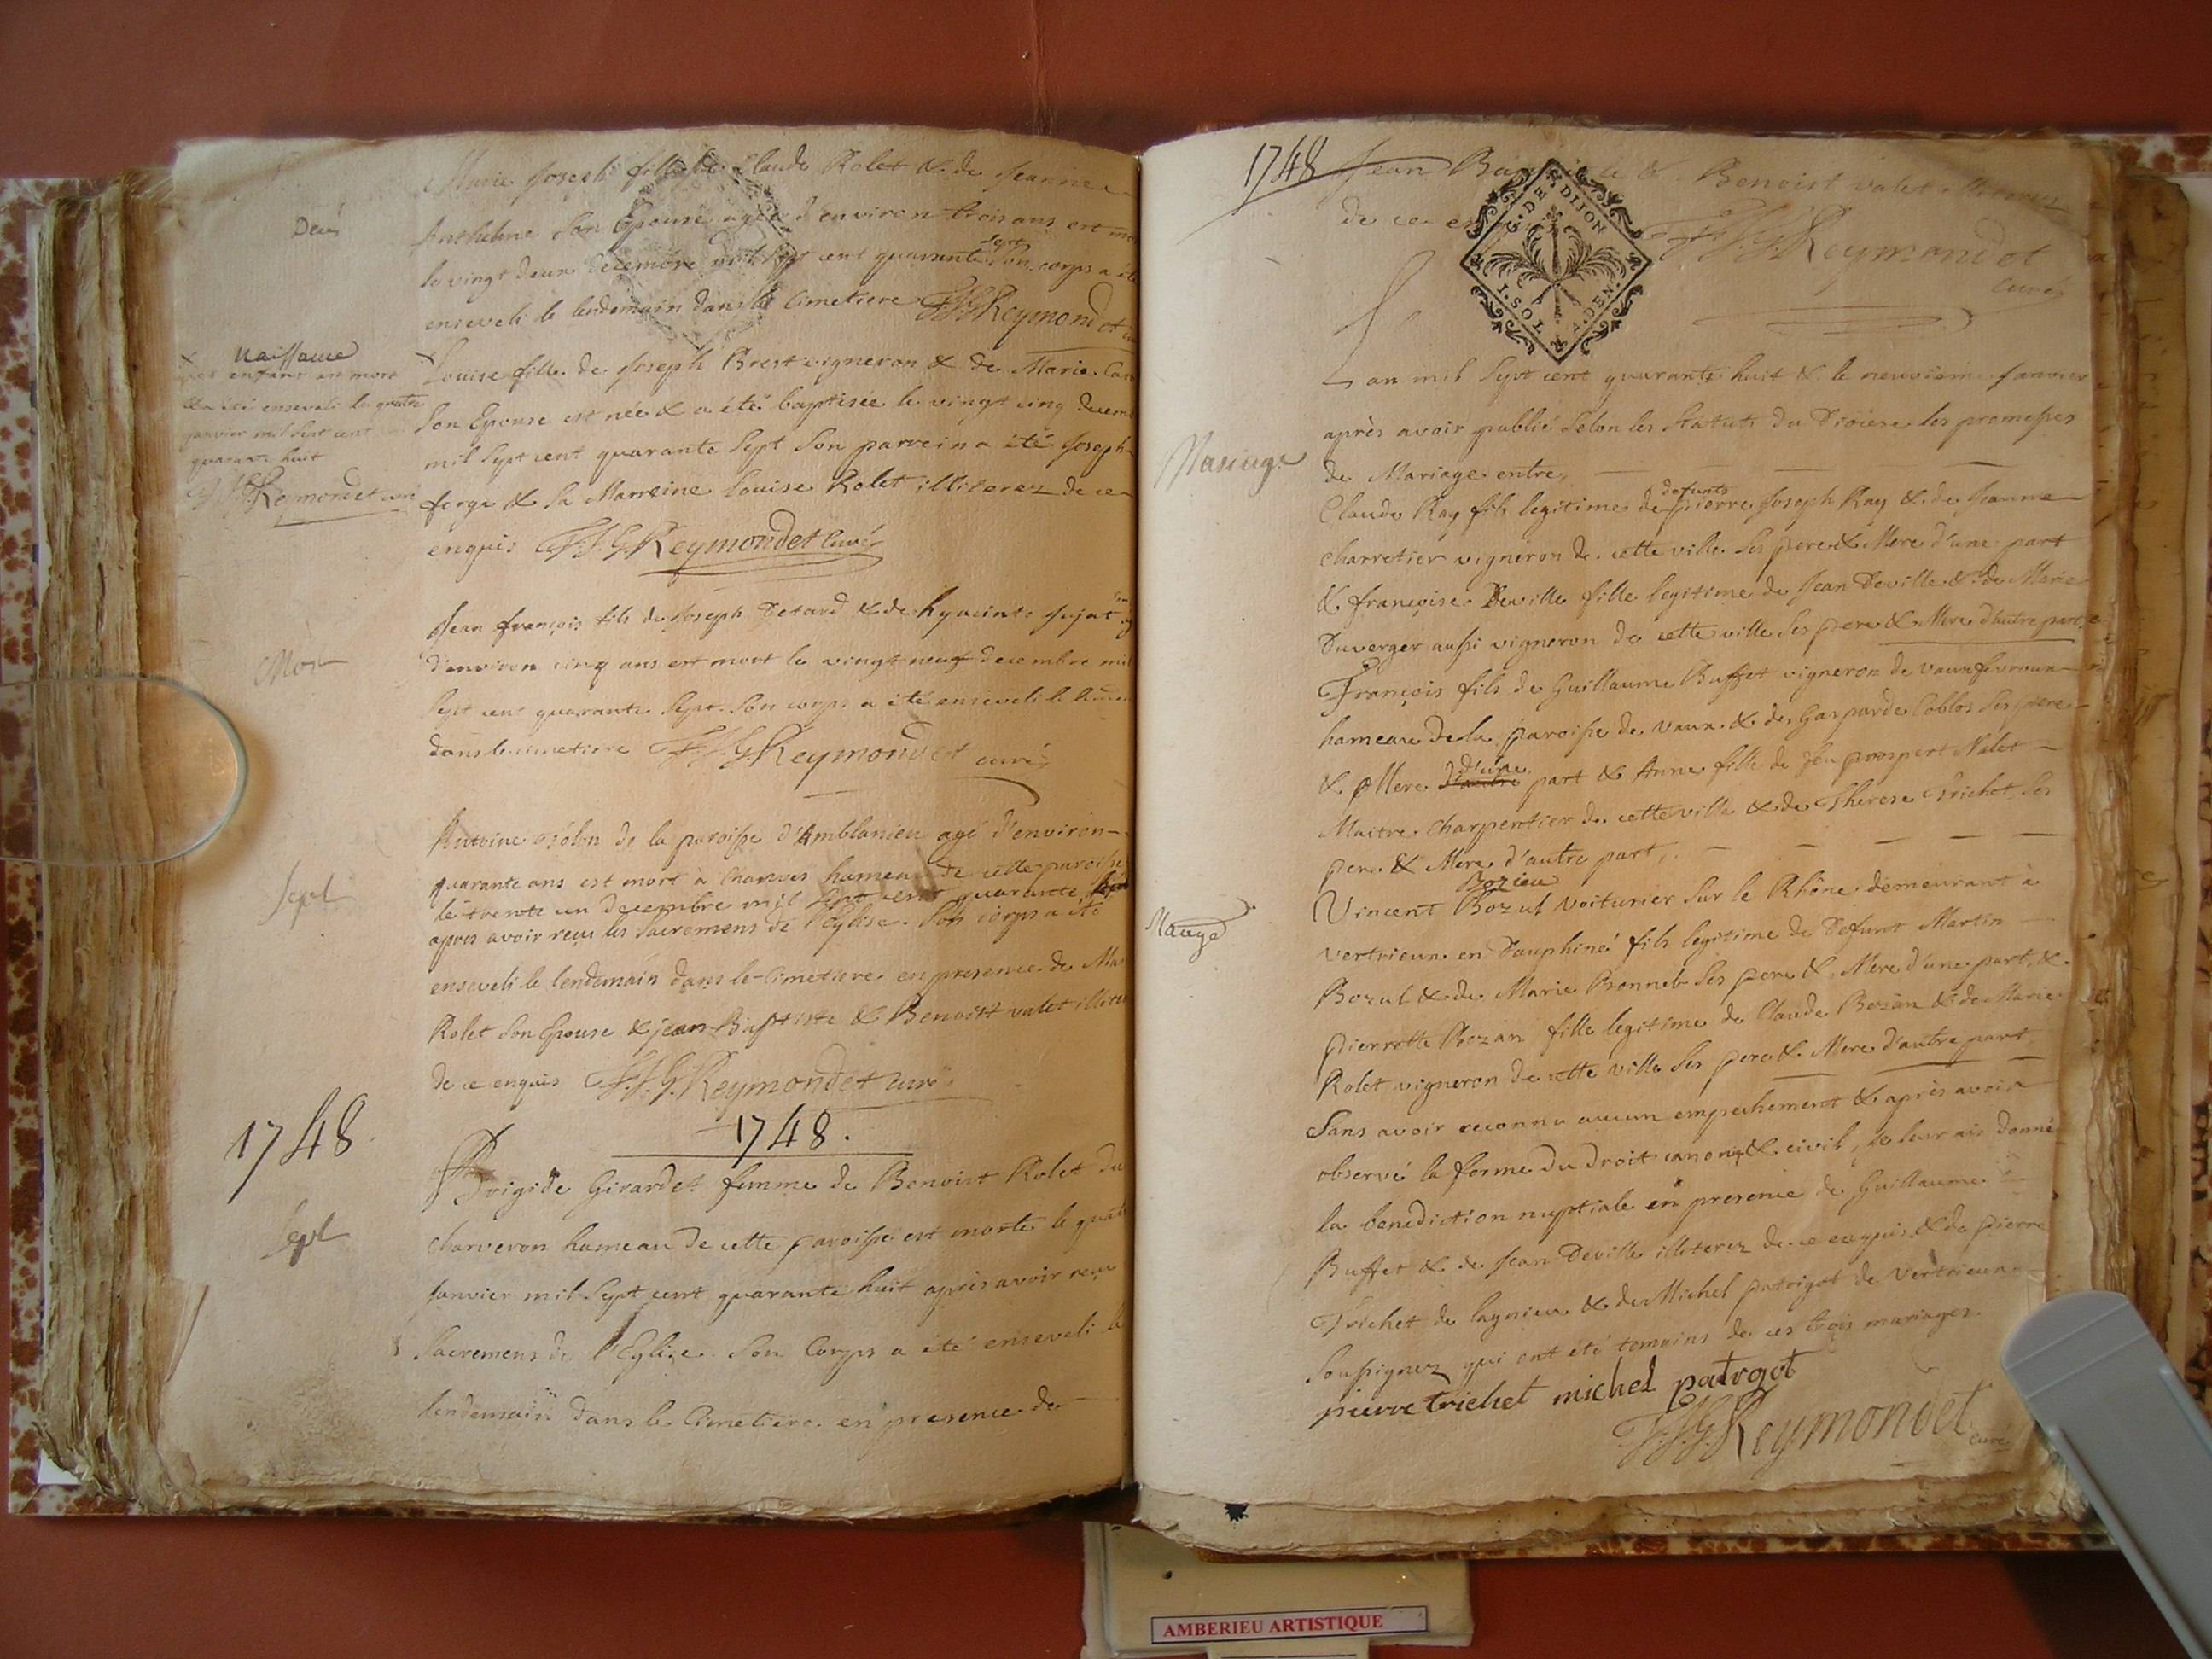 Marie Joseph fille de Claude Rolet & de Jeanne
Decés
Anthelme Son Epouse agée d'environ trois ans est mo
le vingt deux Decembre mil sept cent quarante sept Son corps a été
enseveli le lendemain dans le Cimetiere F.J.G.Reymondet
Naissance
enfant est mort
enseveli le quatre
janvier mil sept cent
quarante huit
F.J.G.Reymondet curé
Louise fille de Joseph Brest vigneron & de Marie
Son Epouse est née & a été baptisée le vingt cinq decem
mil sept cent quarante sept Son parrein a été Joseph
forge & sa Marreine Louise Rolet illiterez de ce
enquis F.J.G.Reymondet Curé
Mor
Jean françois fils de Joseph Tetard & de hyacinte Sujat
d'environ cinq ans est mort le vingt neuf decembre mil
sept cent quarante sept. Son corps a été enseveli le
dans le cimetiere F.J.G.Reymondet curé
Sepl
Antoine de la paroisse d'Amblanieu agé d'environ
quarante ans est mort à hameau de cette paroisse
le trente un decembre mil sept cent quarante
apres avoir reçu les Sacremens de l'Eglise. Son corps a été
enseveli le lendemain dans le Cimetiere en presence de
Rolet Son Epouse & jean Baptiste & Benoist valet
de ce enquis F.J.G.Reymondet curé
1748
1748.
Sepl
Brigide Girardet femme de Benoist Rolet du
charveron hameau de cette paroisse est morte le
Janvier mil Sept cent quarante huit après avoir reçu
Sacremens de l'Eglise. Son Corps a été enseveli le
lendemain dans le Cimetiere en presence de
1748 Jean & Benoist valet
de ce F.J.G.Reymondet
curé
G. DE DIJON
I. SOL A. DEN.
L'an mil Sept cent quarante huit & le neuvieme Janvier
après avoir publié Selon les Statuts du Diocèse les promesses
Mariage
de Mariage entre,
Claude Ray fils legitime de defunts pierre Joseph Ray & de Jeanne
Charretier vigneron de cette ville Ses pere & Mere d'une part
& françoise Deville fille legitime de Jean Deville & de Marie
Duverger aussi vigneron de cette ville Ses pere & Mere d'autre part,
François fils de Guillaume Buffet vigneron de
hameau de la paroisse de vaux & de Gasparde Ses pere
& Mere d'autre d'une part & Anne fille de feu prospert Valet
Maitre Charpentier de cette ville & de Therese Trichet Ses
pere & Mere d'autre part,
Mariage
Vincent Bozul Bozieu voiturier sur le Rhône demeurant à
vertrieux en Dauphiné fils legitime de Defunt Martin
Bozul & de Marie Bonnet Ses pere & Mere d'une part &
pierrotte Bozan fille legitime de Claude Bozan & de Marie
Rolet vigneron de cette ville Ses pere & Mere d'autre part
Sans avoir reconnu aucun empechement & après avoir
observé la forme du Droit canoniq & civil, je leur ais donné
la benediction nuptiale en presence de Guillaume
Buffet & de Jean Deville illiterez de ce enquis & de pierre
Trichet de lagnieu & de Michel patrigot de vertrieux
Soussignez qui ont été temoins de ces trois mariages.
pierre trichet michel patrgot
F.J.G.Reymondet
curé
AMBERIEU ARTISTIQUE